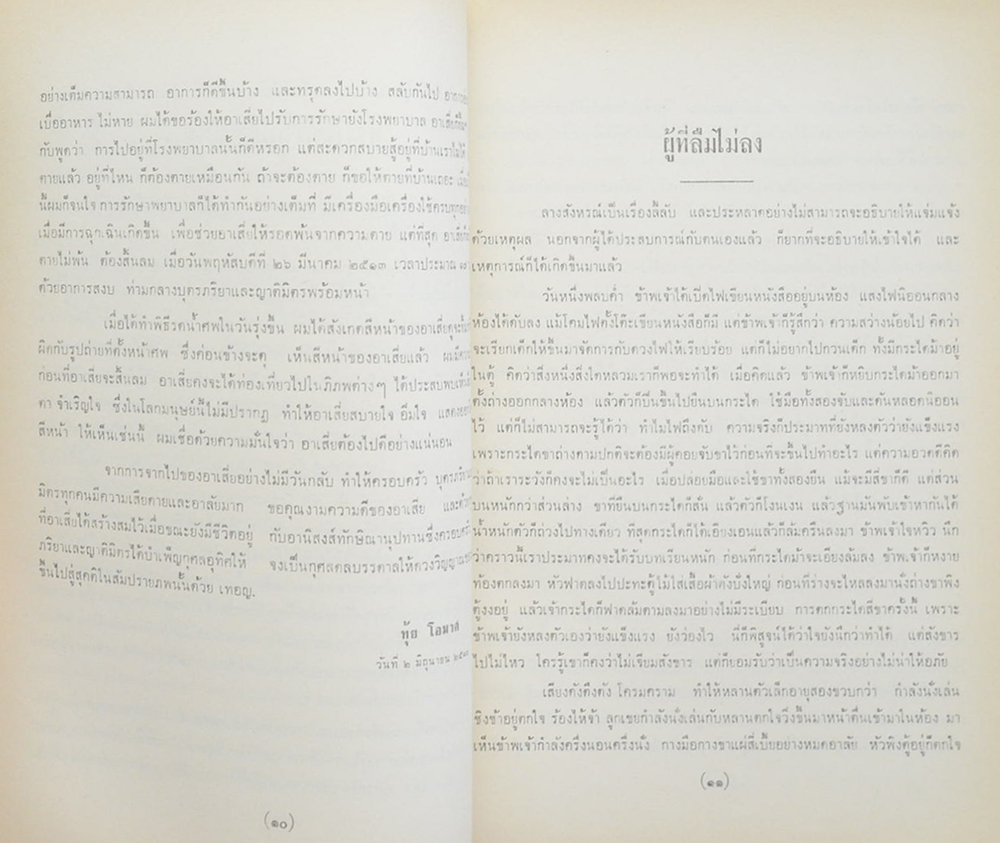 อย่างเต็มความสามารถ อาการก็ดีขึ้นบ้าง และทรุดลงไปบ้าง สลับกันไป
เบื่ออาหาร ไม่หาย ผมได้ขอร้องให้อาเสี่ยไปรับการรักษายังโรงพยาบาล
กับพูดว่า การไปอยู่ที่โรงพยาบาลนั้นก็ดีหรอก แต่สะดวกสบายสู้อยู่ที่บ้านเราไม่ได้
ตายแล้ว อยู่ที่ไหน ก็ต้องตายเหมือนกัน ถ้าจะต้องตาย ก็ขอให้ตายที่บ้านเถอะ
นี้ผมก็จนใจ การรักษาพยาบาลก็ได้ทำกันอย่างเต็มที่ มีเครื่องมือเครื่องใช้ครบทุกอย่าง
เมื่อมีการฉุกเฉินเกิดขึ้น เพื่อช่วยอาเสี่ยให้รอดพ้นจากความตาย แต่ที่สุด
ตายไม่พ้น ต้องสิ้นลม เมื่อวันพฤหัสบดีที่ ๒๖ มีนาคม ๒๕๑๓ เวลาประมาณ
ด้วยอาการสงบ ท่ามกลางบุตรภริยาและญาติมิตรพร้อมหน้า
เมื่อได้ทำพิธีรดน้ำศพในวันรุ่งขึ้น ผมได้สังเกตสีหน้าของอาเสี่ย
ผิดกับรูปถ่ายที่ตั้งหน้าศพ ซึ่งค่อนข้างจะดุ เห็นสีหน้าของอาเสี่ยแล้ว
ก่อนที่อาเสี่ยจะสิ้นลม อาเสี่ยคงจะได้ท่องเที่ยวไปในภิภพต่างๆ
ตา จำเริญใจ ซึ่งในโลกมนุษย์นี้ไม่มีปรากฏ ทำให้อาเสี่ยสบายใจ อิ่มใจ
สีหน้า ให้เห็นเช่นนี้ ผมเชื่อด้วยความมั่นใจว่า อาเสี่ยต้องไปดีอย่างแน่นอน
จากการจากไปของอาเสี่ยอย่างไม่มีวันกลับ ทำให้ครอบครัว
มิตรทุกคนมีความเสียดายและอาลัยมาก ขอคุณงามความดีของอาเสี่ย
ที่อาเสี่ยได้สร้างสมไว้เมื่อขณะยังมีชีวิตอยู่ กับอานิสงส์ทักษิณานุปทานซึ่งครอบครัว
ภริยาและญาติมิตรได้บำเพ็ญกุศลอุทิศให้ จงเป็นกุศลดลบรรดาลให้ดวงวิญญาณ
ขึ้นไปสู่สุคติในสัมปรายภพนั้นด้วย เทอญ.
ทุ้ย โอมาศ
วันที่ ๒ มิถุนายน
(๑๐)
ผู้ที่ลืมไม่ลง
ลางสังหรณ์เป็นเรื่องลี้ลับ และประหลาดอย่างไม่สามารถจะอธิบายให้แจ่มแจ้ง
ด้วยเหตุผล นอกจากผู้ได้ประสบการณ์กับตนเองแล้ว ก็ยากที่จะอธิบายให้เข้าใจได้ และ
เหตุการณ์ก็ได้เกิดขึ้นมาแล้ว
วันหนึ่งพลบค่ำ ข้าพเจ้าได้เปิดไฟเขียนหนังสืออยู่บนห้อง แสงไฟนิออนกลาง
ห้องได้ดับลง แม้โคมไฟตั้งโต๊ะเขียนหนังสือก็มี แต่ข้าพเจ้าก็รู้สึกว่า ความสว่างน้อยไป คิดว่า
จะเรียกเด็กให้ขึ้นมาจัดการกับดวงไฟให้เรียบร้อย แต่ก็ไม่อยากไปกวนเด็ก ทั้งมีกระไดม้าอยู่
ในตู้ คิดว่าสิ่งหนึ่งสิ่งใดหลวมเราก็พอจะทำได้ เมื่อคิดแล้ว ข้าพเจ้าก็หยิบกระไดม้าออกมา
ตั้งถ่างออกกลางห้อง แล้วตัวก็ปีนขึ้นไปยืนบนกระได ใช้มือทั้งสองจับและดันหลอดนิออน
ไว้ แต่ก็ไม่สามารถจะรู้ได้ว่า ทำไมไฟถึงดับ ความจริงก็ประมาทที่ยังหลงตัวว่ายังแข็งแรง
เพราะกระไดขาถ่างตามปกติจะต้องมีผู้คอยจับขาไว้ก่อนที่จะขึ้นไปทำอะไร แต่ความอวดดีคิด
ว่าถ้าเราระวังก็คงจะไม่เป็นอะไร เมื่อปล่อยมือและใช้ขาทั้งสองยืน แม้จะมีสี่ขาก็ดี แต่ส่วน
บนหนักกว่าส่วนล่าง ขาที่ยืนบนกระไดก็สั่น แล้วตัวก็โงนเงน แล้วฐานมันพับเข้าหากันได้
น้ำหนักตัวก็ถ่วงไปทางเดียว ที่สุดกระไดก็ได้เอียงเอนแล้วก็ล้มครืนลงมา ข้าพเจ้าใจหวิว นึก
ว่าคราวนี้เราประมาทคงจะได้รับบทเรียนหนัก ก่อนที่กระไดม้าจะเอียงล้มลง ข้าพเจ้าก็หงาย
ท้องตกลงมา หัวฟาดลงไปปะทะตู้ไม้ใส่เสื้อผ้าดังปั่งใหญ่ ก่อนที่ร่างจะไหลลงมานั่งถ่างขาพิง
ตู้งงอยู่ แล้วเจ้ากระไดก็ฟาดล้มตามลงมาอย่างไม่มีระเบียบ การตกกระไดสี่ขาครั้งนี้ เพราะ
ข้าพเจ้ายังหลงตัวเองว่ายังแข็งแรง ยังว่องไว นี่ก็พิสูจน์ได้ว่าใจยังนึกว่าทำได้ แต่สังขาร
ไปไม่ไหว ใครรู้เขาก็คงว่าไม่เจียมสังขาร แต่ก็ยอมรับว่าเป็นความจริงอย่างไม่น่าให้อภัย
เสียงดังตึงตัง โครมคราม ทำให้หลานตัวเล็กอายุสองขวบกว่า กำลังนั่งเล่น
ชิงช้าอยู่ตกใจ ร้องไห้จ้า ลูกเขยกำลังนั่งเล่นกับหลานตกใจวิ่งขึ้นมาหน้าตื่นเข้ามาในห้อง มา
เห็นข้าพเจ้ากำลังครึ่งนอนครึ่งนั่ง กางมือกางขาแผ่สี่เบี้ยอย่างหมดอาลัย หัวพิงตู้อยู่ก็ตกใจ
(๑๑)